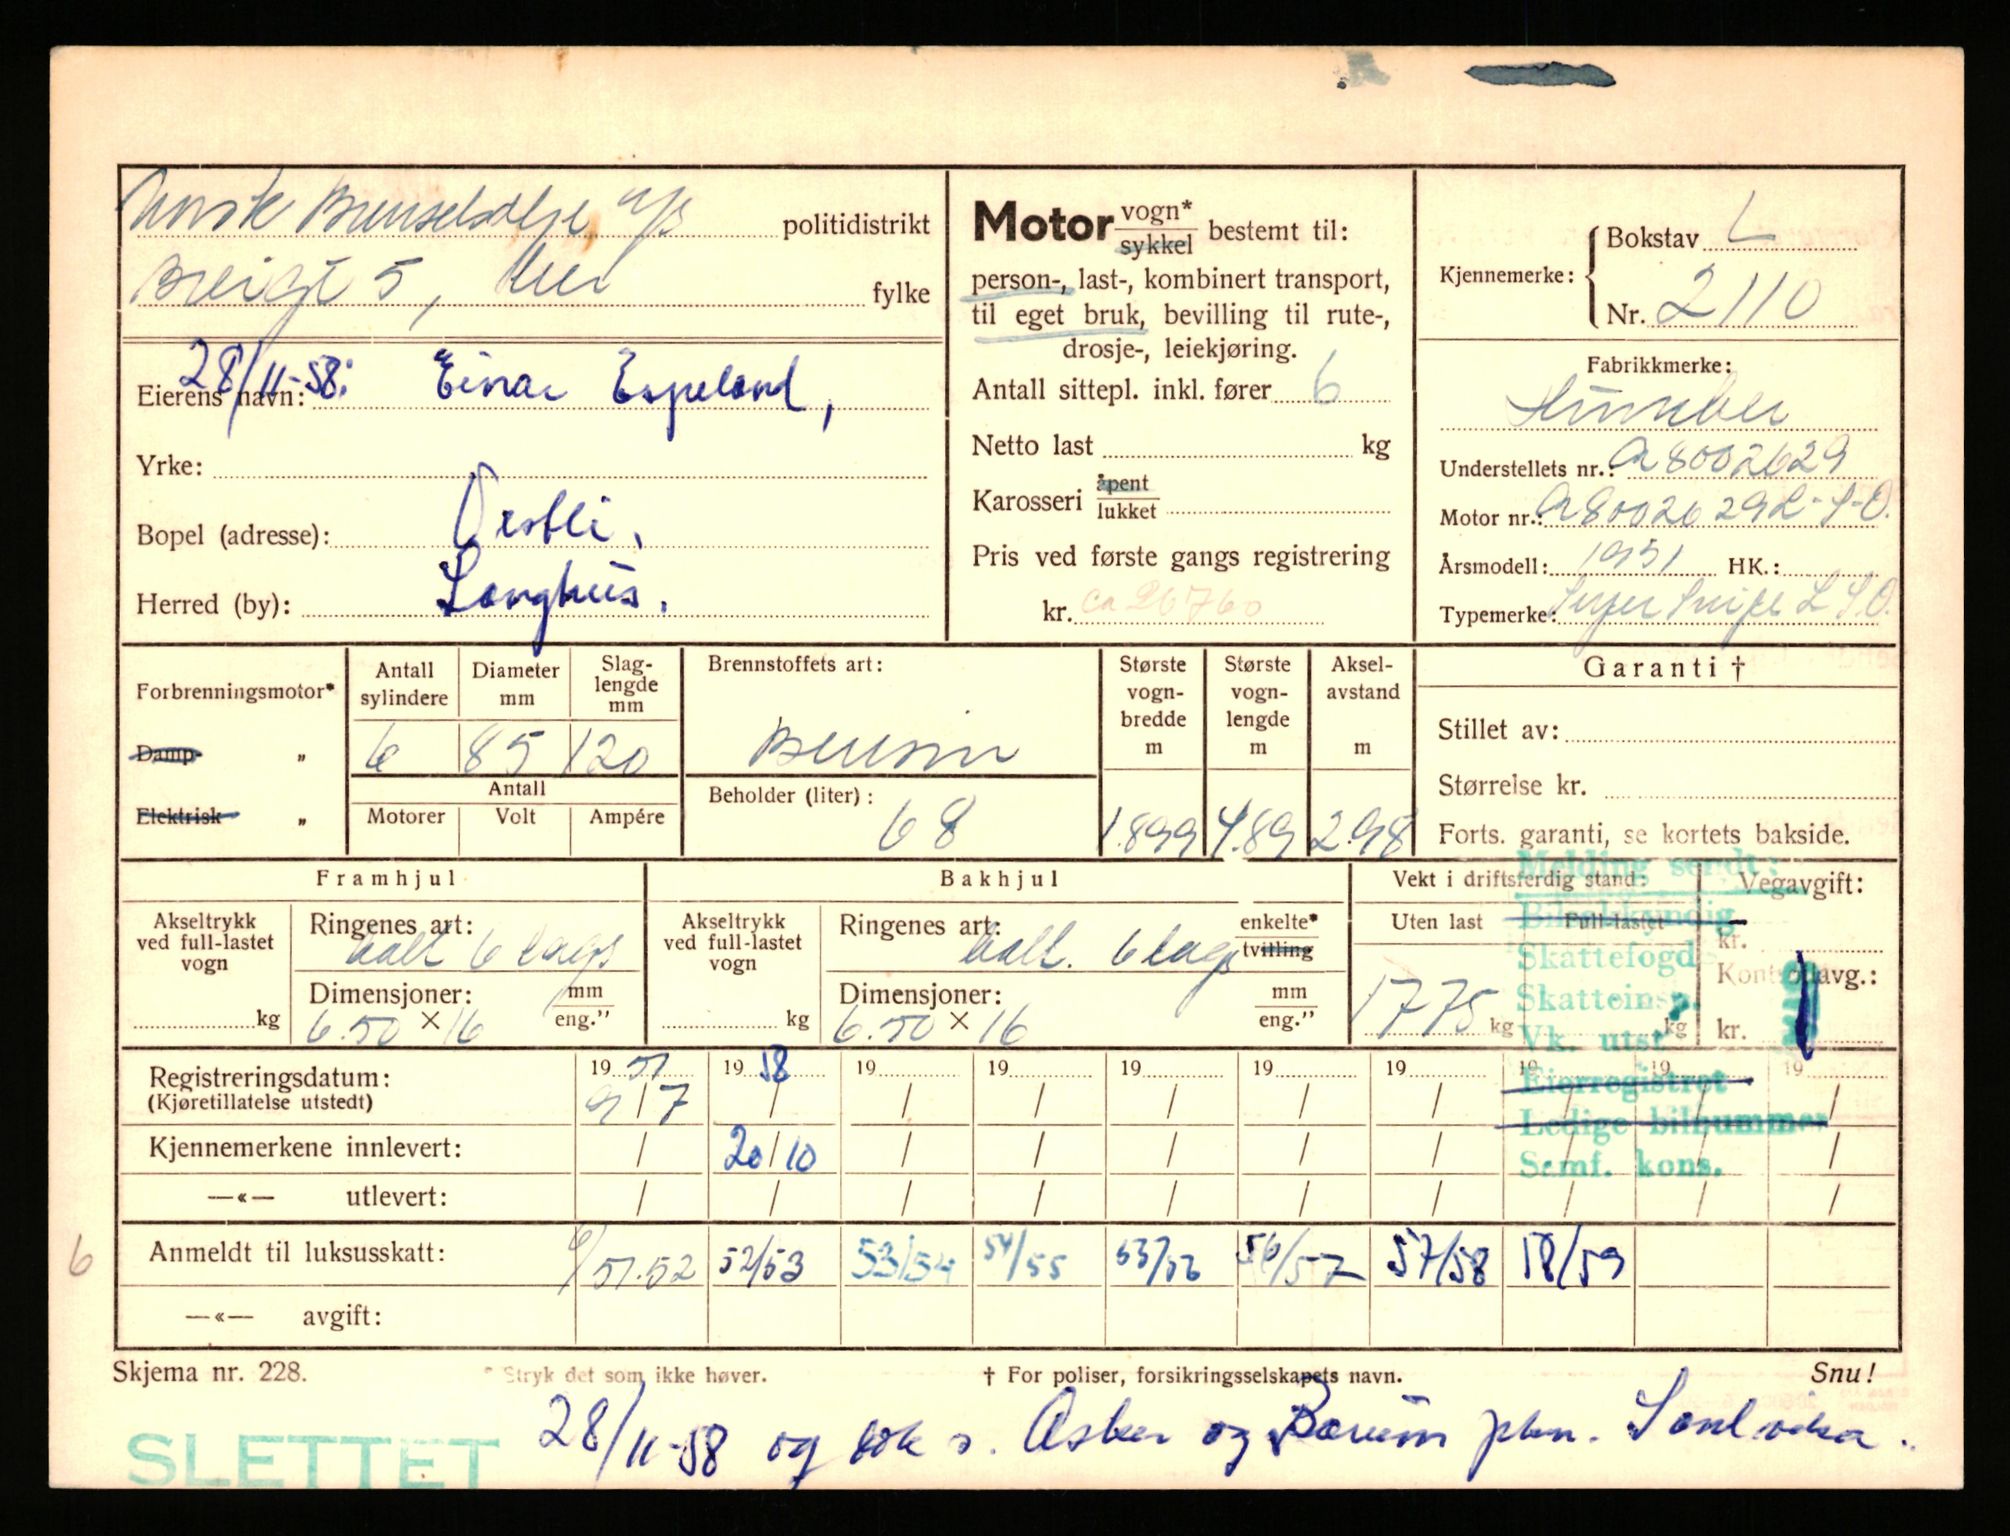 Norsk Brenselolje A/S politidistrikt
5, fylke
28/11-58: Einar Espeland,
Eierens navn:
Yrke:
Bopel (adresse): Vestli,
Herred (by): Langhus.
Motor vogn* / sykkel bestemt til:
person-, last-, kombinert transport,
til eget bruk, bevilling til rute-,
drosje-, leiekjøring.
Antall sittepl. inkl. fører 6
Netto last kg
Karosseri åpent / lukket
Pris ved første gangs registrering
kr. ca 26760
Kjennemerke: Bokstav L
Nr. 2110
Fabrikkmerke:
Humber
Understellets nr.: A8002629
Motor nr.: A8002629L-S-O.
Årsmodell: 1951 HK.:
Typemerke: Super Snipe L S.O.
Forbrenningsmotor*
Damp "
Elektrisk "
Antall sylindere Diameter mm Slag-lengde mm
6 85 120
Antall
Motorer Volt Ampére
Brennstoffets art:
Bensin
Beholder (liter):
68
Største vogn-bredde m
1.899
Største vogn-lengde m
4.89
Aksel-avstand m
2.98
Garanti †
Stillet av:
Størrelse kr.
Forts. garanti, se kortets bakside.
Framhjul
Akseltrykk ved full-lastet vogn
kg
Ringenes art:
ball 6 lags
Dimensjoner: mm / eng."
6.50 × 16
Bakhjul
Akseltrykk ved full-lastet vogn
kg
Ringenes art: enkelte* / tvilling
ball. 6 lags
Dimensjoner: mm / eng."
6.50 × 16
Vekt i driftsferdig stand:
Uten last Full-lastet
1775 kg kg
Vegavgift:
kr.
Kontrollavg.:
kr.
Melding sendt:
Bilsakkyndig
Skattefogd
Skatteinsp.
Vk. utst
Eierregistret
Ledige bilnummer
Samf. kons.
Registreringsdatum: 19 51 19 58 19 19 19 19 19 19 19 19
(Kjøretillatelse utstedt) 9/7 / / / / / / / / /
Kjennemerkene innlevert: / 20/10 / / / / / / / /
—«— utlevert: / / / / / / / / / /
6
Anmeldt til luksusskatt: 51.52 52/53 53/54 54/55 55/56 56/57 57/58 58/59
—«— avgift:
Skjema nr. 228. * Stryk det som ikke høver. † For poliser, forsikringsselskapets navn. Snu!
28/11-58 og Asker og Bærum Sandvika.
SLETTET